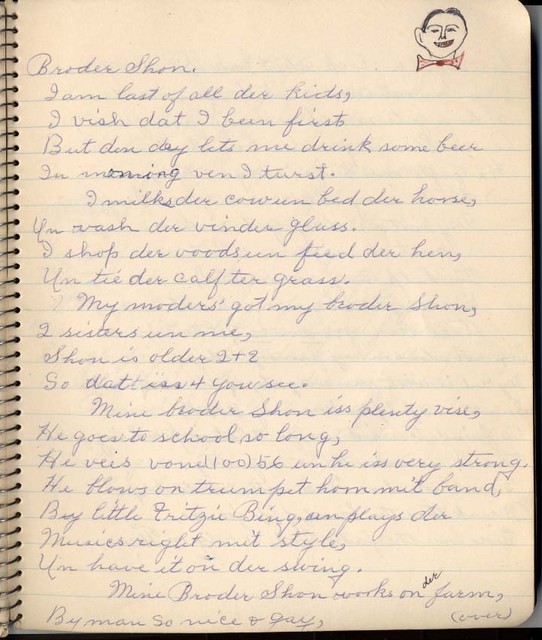 Broder Shon.
I am last of all der kids,
I vish dat I been first
But den dey lets me drink some beer
In morning ven I turst.
I milks der cow un bed der horse,
Un vash der vinder glass.
I shop der voods un feed der hen,
Un tie der calf ter grass.
My moders' got my broder Shon,
2 sisters un me,
Shon is older 2+2
So datt iss 4 you see.
Mine broder Shon iss plenty vise,
He goes to school so long,
He veis vone (100) 56 un he iss very strong.
He blows on trumpet horn mit band,
By little Fritzie Bing, un plays der
Musics right mit style,
Un have it on der swing.
Mine Broder Shon works on der farm,
By man so nice & gay,
(over)